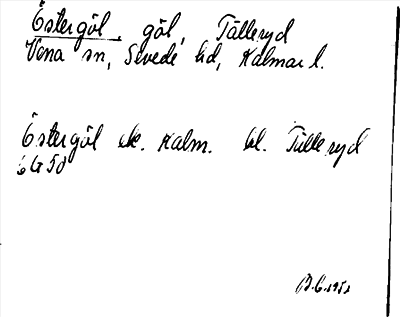 Östergöl, göl, Tälleryd
Vena sn, Sevede hd, Kalmar l.
Östergöl ek. Kalm. bl. Tälleryd
6G5d